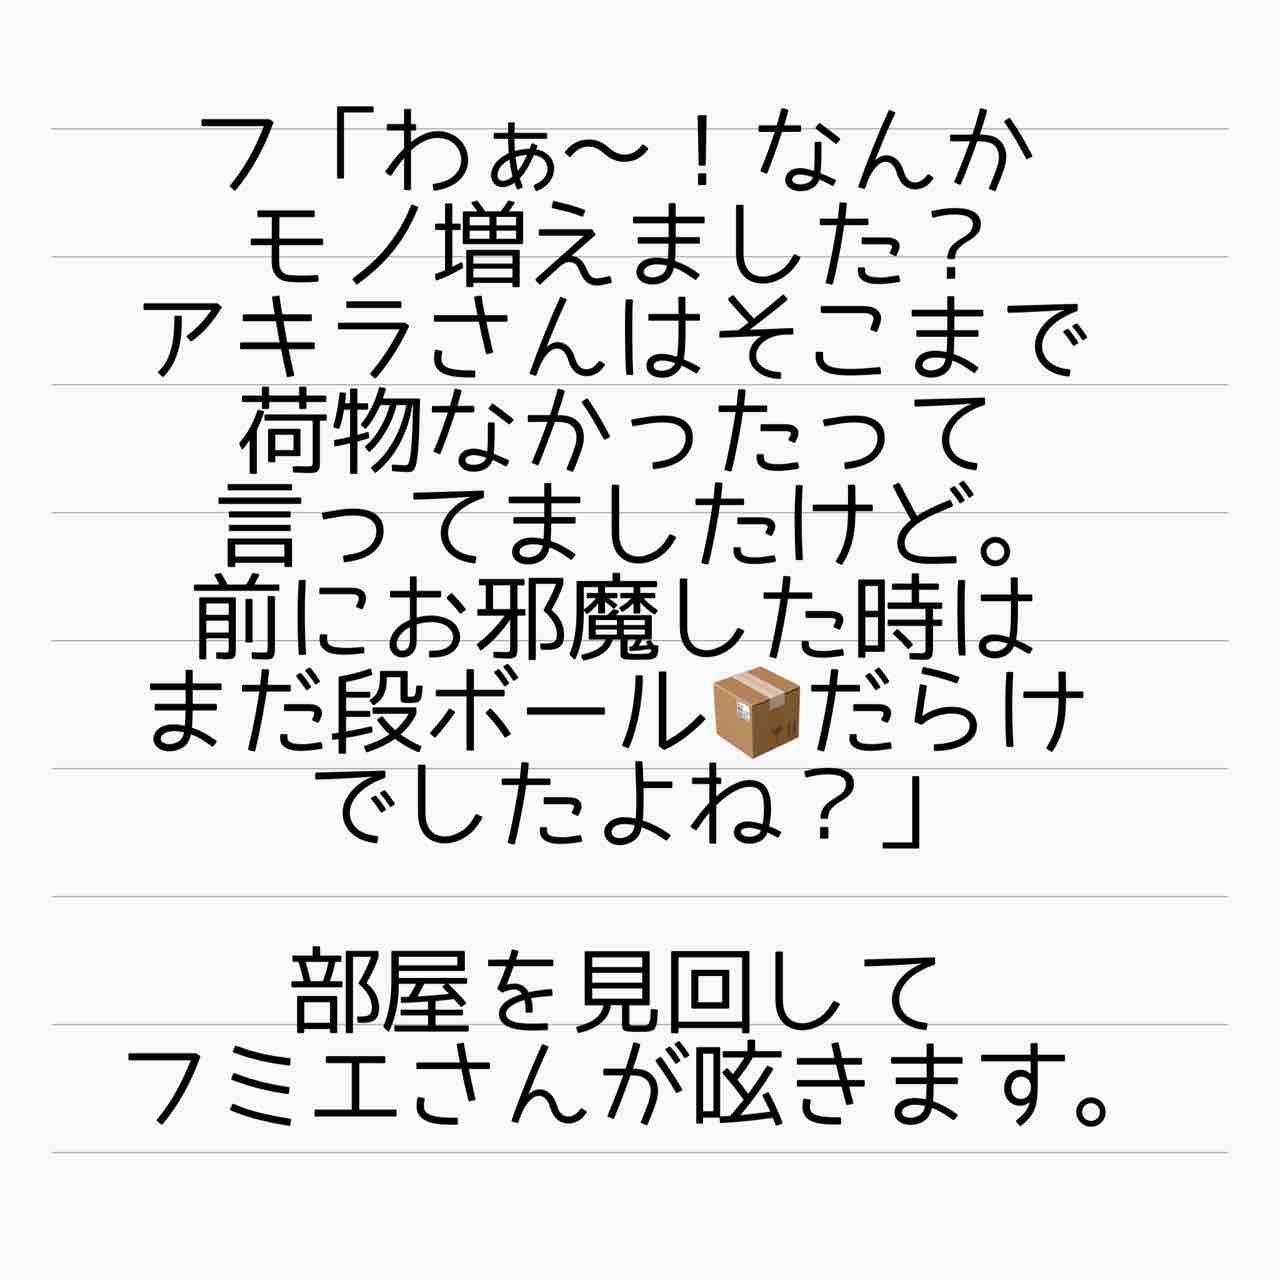 フ「わぁ〜！なんか
モノ増えました？
アキラさんはそこまで
荷物なかったって
言ってましたけど。
前にお邪魔した時は
まだ段ボール📦だらけ
でしたよね？」
部屋を見回して
フミエさんが呟きます。